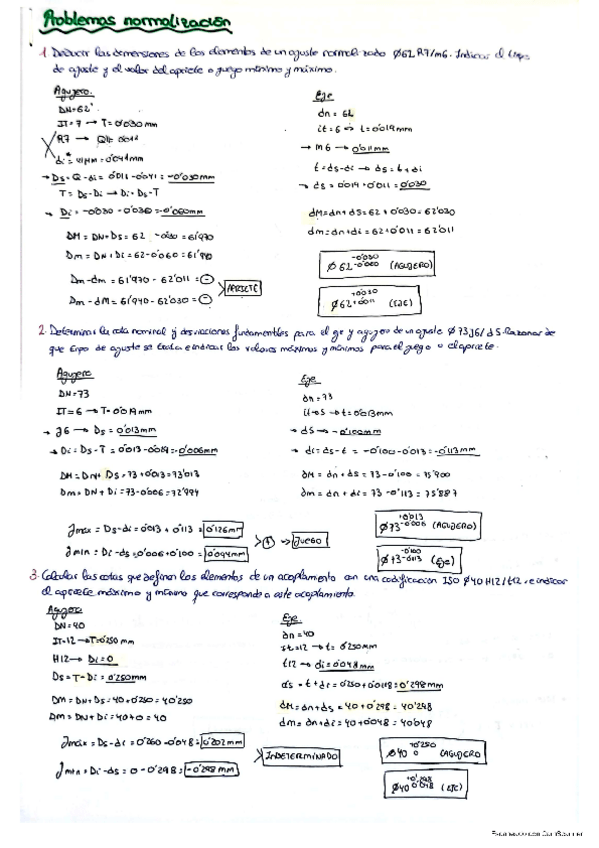 Problemas normalización
1. Deducir las dimensiones de los elementos de un ajuste normalizado Ø62 R7/m6. Indicar el tipo
de ajuste y el valor del apriete o juego mínimo y máximo.
Agujero.
DN=62
IT=7 → T=0'030mm
R7 →
di = 0'041mm
→ Ds = -di = 0'011-0'041 = -0'030mm
T = Ds-Di → Di = Ds-T
→ Di = -0'030 - 0'030 = -0'060mm
DM = DN+Ds = 62 - 0'030 = 61'970
Dm = DN+Di = 62-0'060 = 61'940
Dm-dm = 61'970 - 62'011 = -
Dm-dM = 61'940 - 62'030 = -
APRIETE
Eje
dn = 62
it=6 → t=0'019mm
→ m6 → 0'011mm
t = ds-di → ds = t+di
→ ds = 0'019+0'011 = 0'030
dM = dn+ds = 62+0'030 = 62'030
dm = dn+di = 62+0'011 = 62'011
Ø62 -0'030 -0'060 (AGUJERO)
Ø62 +0'030 +0'011 (EJE)
2. Determinar la cota nominal y desviaciones fundamentales para el eje y agujero de un ajuste Ø73 J6/d5. Razonar de
que tipo de ajuste se trata e indicar los valores máximos y mínimos para el juego o el apriete.
Agujero
DN=73
IT=6 → T=0'019mm
→ J6 → Ds = 0'013mm
→ Di = Ds-T = 0'013-0'019 = -0'006mm
DM = DN+Ds = 73+0'013 = 73'013
Dm = DN+Di = 73-0'006 = 72'994
Eje
dn=73
it=5 → t=0'013mm
→ d5 → -0'100mm
→ di = ds-t = -0'100-0'013 = -0'113mm
dM = dn+ds = 73-0'100 = 75'900
dm = dn+di = 73-0'113 = 75'887
Jmáx = Ds-di = 0'013+0'113 = 0'126mm
Jmin = Di-ds = 0'006+0'100 = 0'094mm
+ → JUEGO
Ø73 +0'013 -0'006 (AGUJERO)
Ø73 -0'100 -0'113 (Eje)
3. Calcular las cotas que definen los elementos de un acoplamiento con una codificación ISO Ø40 H12/t12, e indicar
el apriete máximo y mínimo que corresponde a este acoplamiento.
Agujero
DN=40
IT=12 → T=0'250mm
H12 → Di=0
Ds = T-Di = 0'250mm
DM = DN+Ds = 40+0'250 = 40'250
Dm = DN+Di = 40+0 = 40
Eje
dn=40
it=12 → t=0'250mm
t12 → di=0'048mm
ds = t+di = 0'250+0'048 = 0'298mm
dM = dn+ds = 40+0'298 = 40'298
dm = dn+di = 40+0'048 = 40'048
Jmáx = Ds-di = 0'250-0'048 = 0'202mm
Jmin = Di-ds = 0-0'298 = -0'298mm
INDETERMINADO
Ø40 +0'250 0 (AGUJERO)
Ø40 +0'298 0'048 (EJE)
Escaneado con CamScanner